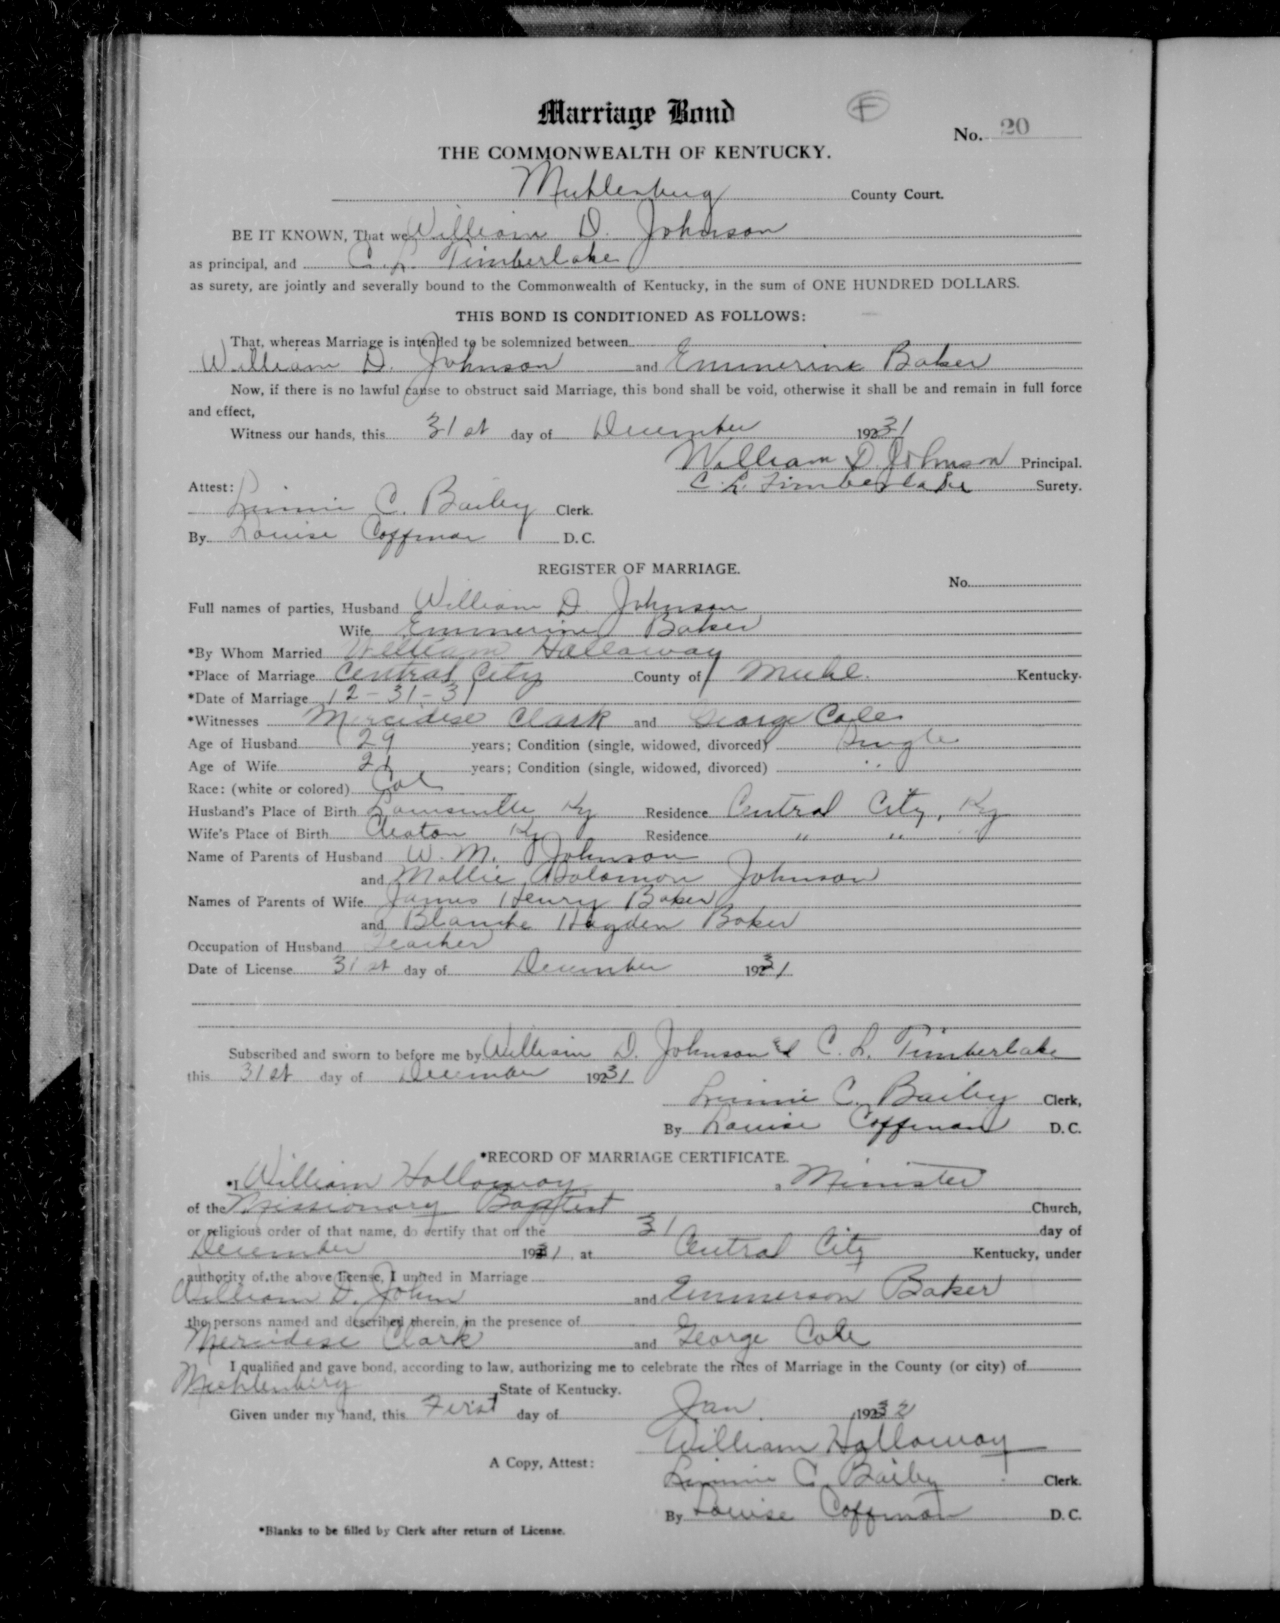 Marriage Bond F
No. 20
THE COMMONWEALTH OF KENTUCKY.
Muhlenburg County Court.
BE IT KNOWN, That we William D. Johnson
as principal, and C. L. Timberlake
as surety, are jointly and severally bound to the Commonwealth of Kentucky, in the sum of ONE HUNDRED DOLLARS.
THIS BOND IS CONDITIONED AS FOLLOWS:
That, whereas Marriage is intended to be solemnized between
William D. Johnson and Emmerine Baker
Now, if there is no lawful cause to obstruct said Marriage, this bond shall be void, otherwise it shall be and remain in full force
and effect,
Witness our hands, this 31st day of December 1931
William D. Johnson Principal.
Attest: C. L. Timberlake Surety.
Linnie C. Bailey Clerk.
By Louise Coffman D.C.
REGISTER OF MARRIAGE.
No.
Full names of parties, Husband William D Johnson
Wife Emmerine Baker
*By Whom Married William Hallaway
*Place of Marriage Central City County of Muhl. Kentucky.
*Date of Marriage 12-31-31
*Witnesses Mercidese Clark and George Cole
Age of Husband 29 years; Condition (single, widowed, divorced) Single
Age of Wife years; Condition (single, widowed, divorced) "
Race: (white or colored) Col
Husband's Place of Birth Louisville Ky Residence Central City, Ky
Wife's Place of Birth Cleaton Ky Residence " "
Name of Parents of Husband W. M. Johnson
and Mollie Solomon Johnson
Names of Parents of Wife James Henry Baker
and Blanche Hayden Baker
Occupation of Husband Teacher
Date of License 31st day of December 1931
Subscribed and sworn to before me by William D. Johnson & C. L. Timberlake
this 31st day of December 1931
Linnie C. Bailey Clerk,
By Louise Coffman D.C.
*RECORD OF MARRIAGE CERTIFICATE.
*I William Holloway, Minister
of the Missionary Baptist Church,
or religious order of that name, do certify that on the 31 day of
December 1931, at Central City Kentucky, under
authority of the above license, I united in Marriage
William D. John and Emmerson Baker
the persons named and described therein, in the presence of
Mercidese Clark and George Cole
I qualified and gave bond, according to law, authorizing me to celebrate the rites of Marriage in the County (or city) of
Muhlenberg, State of Kentucky.
Given under my hand, this First day of Jan. , 1932
William Holloway
A Copy, Attest:
Linnie C. Bailey Clerk.
By Louise Coffman D.C.
*Blanks to be filled by Clerk after return of License.